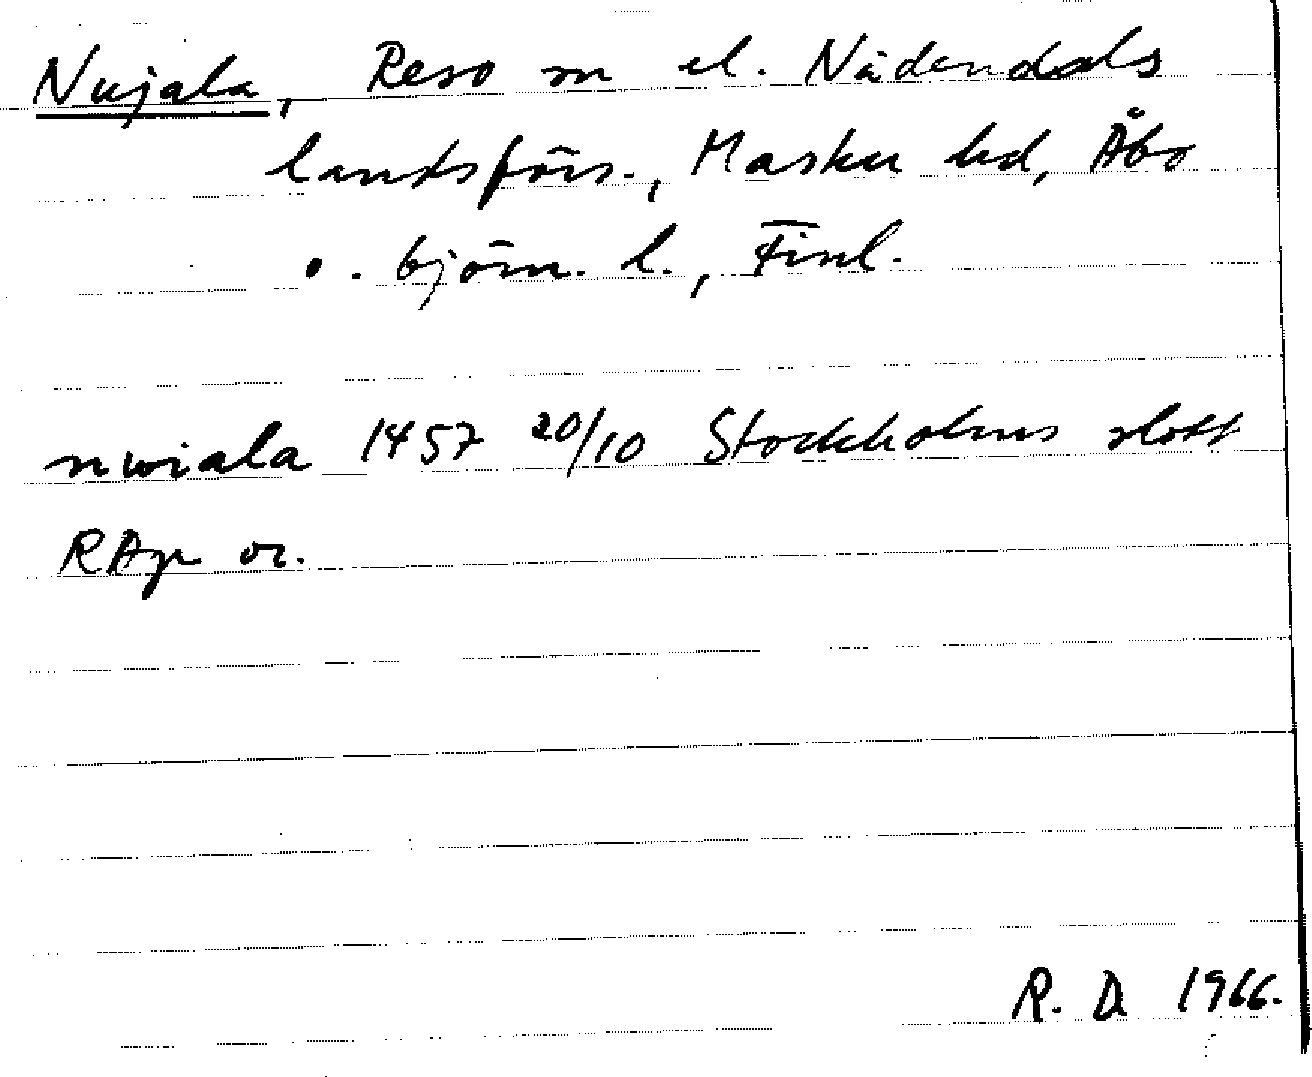 Nujala, Reso sn el. Nådendals
landsförs., Masku hd, Åbo
o. björn. l., Finl.
nwiala 1457 20/10 Stockholms slott
RAp or.
R. D. 1966.